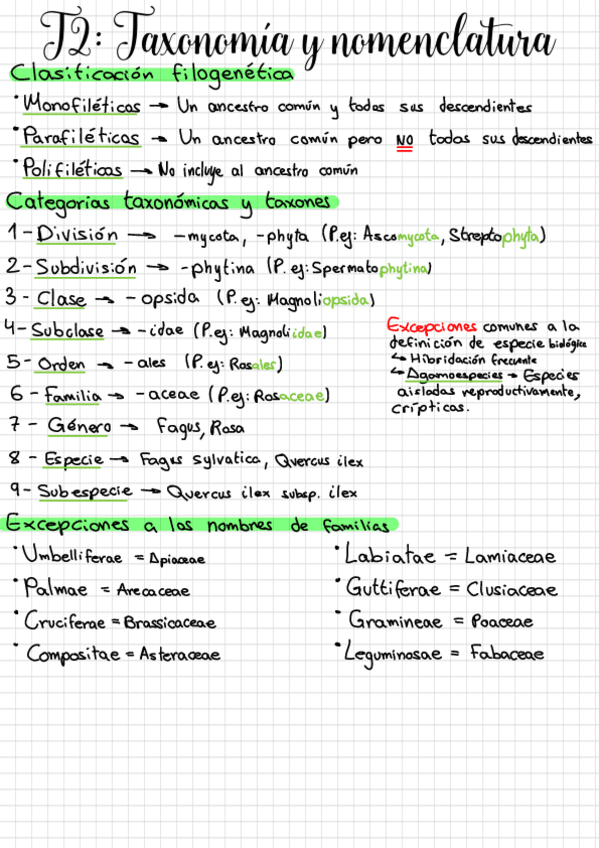 T2: Taxonomía y nomenclatura
Clasificación filogenética
· Monofiléticas → Un ancestro común y todos sus descendientes
· Parafiléticas → Un ancestro común pero NO todos sus descendientes
· Polifiléticas → No incluye al ancestro común
Categorías taxonómicas y taxones
1 - División → -mycota, -phyta (P.ej: Ascomycota, Streptophyta)
2 - Subdivisión → -phytina (P. ej: Spermatophytina)
3 - Clase → - opsida (P. ej: Magnoliopsida)
4- Subclase → -idae (P.ej: Magnoliidae)
5 - Orden → -ales (P. ej: Rosales)
6 - Familia → -aceae (P.ej: Rosaceae)
7 - Género → Fagus, Rosa
8 - Especie → Fagus sylvatica, Quercus ilex
9- Subespecie → Quercus ilex subsp. ilex
Excepciones comunes a la
definición de especie biológica
↳ Hibridación frecuente
↳ Agamoespecies → Especies
aisladas reproductivamente,
crípticas.
Excepciones a los nombres de familias
· Umbelliferae = Apiaceae
· Palmae = Arecaceae
· Cruciferae = Brassicaceae
· Compositae = Asteraceae
· Labiatae = Lamiaceae
· Guttiferae = Clusiaceae
· Gramineae = Poaceae
· Leguminosae = Fabaceae